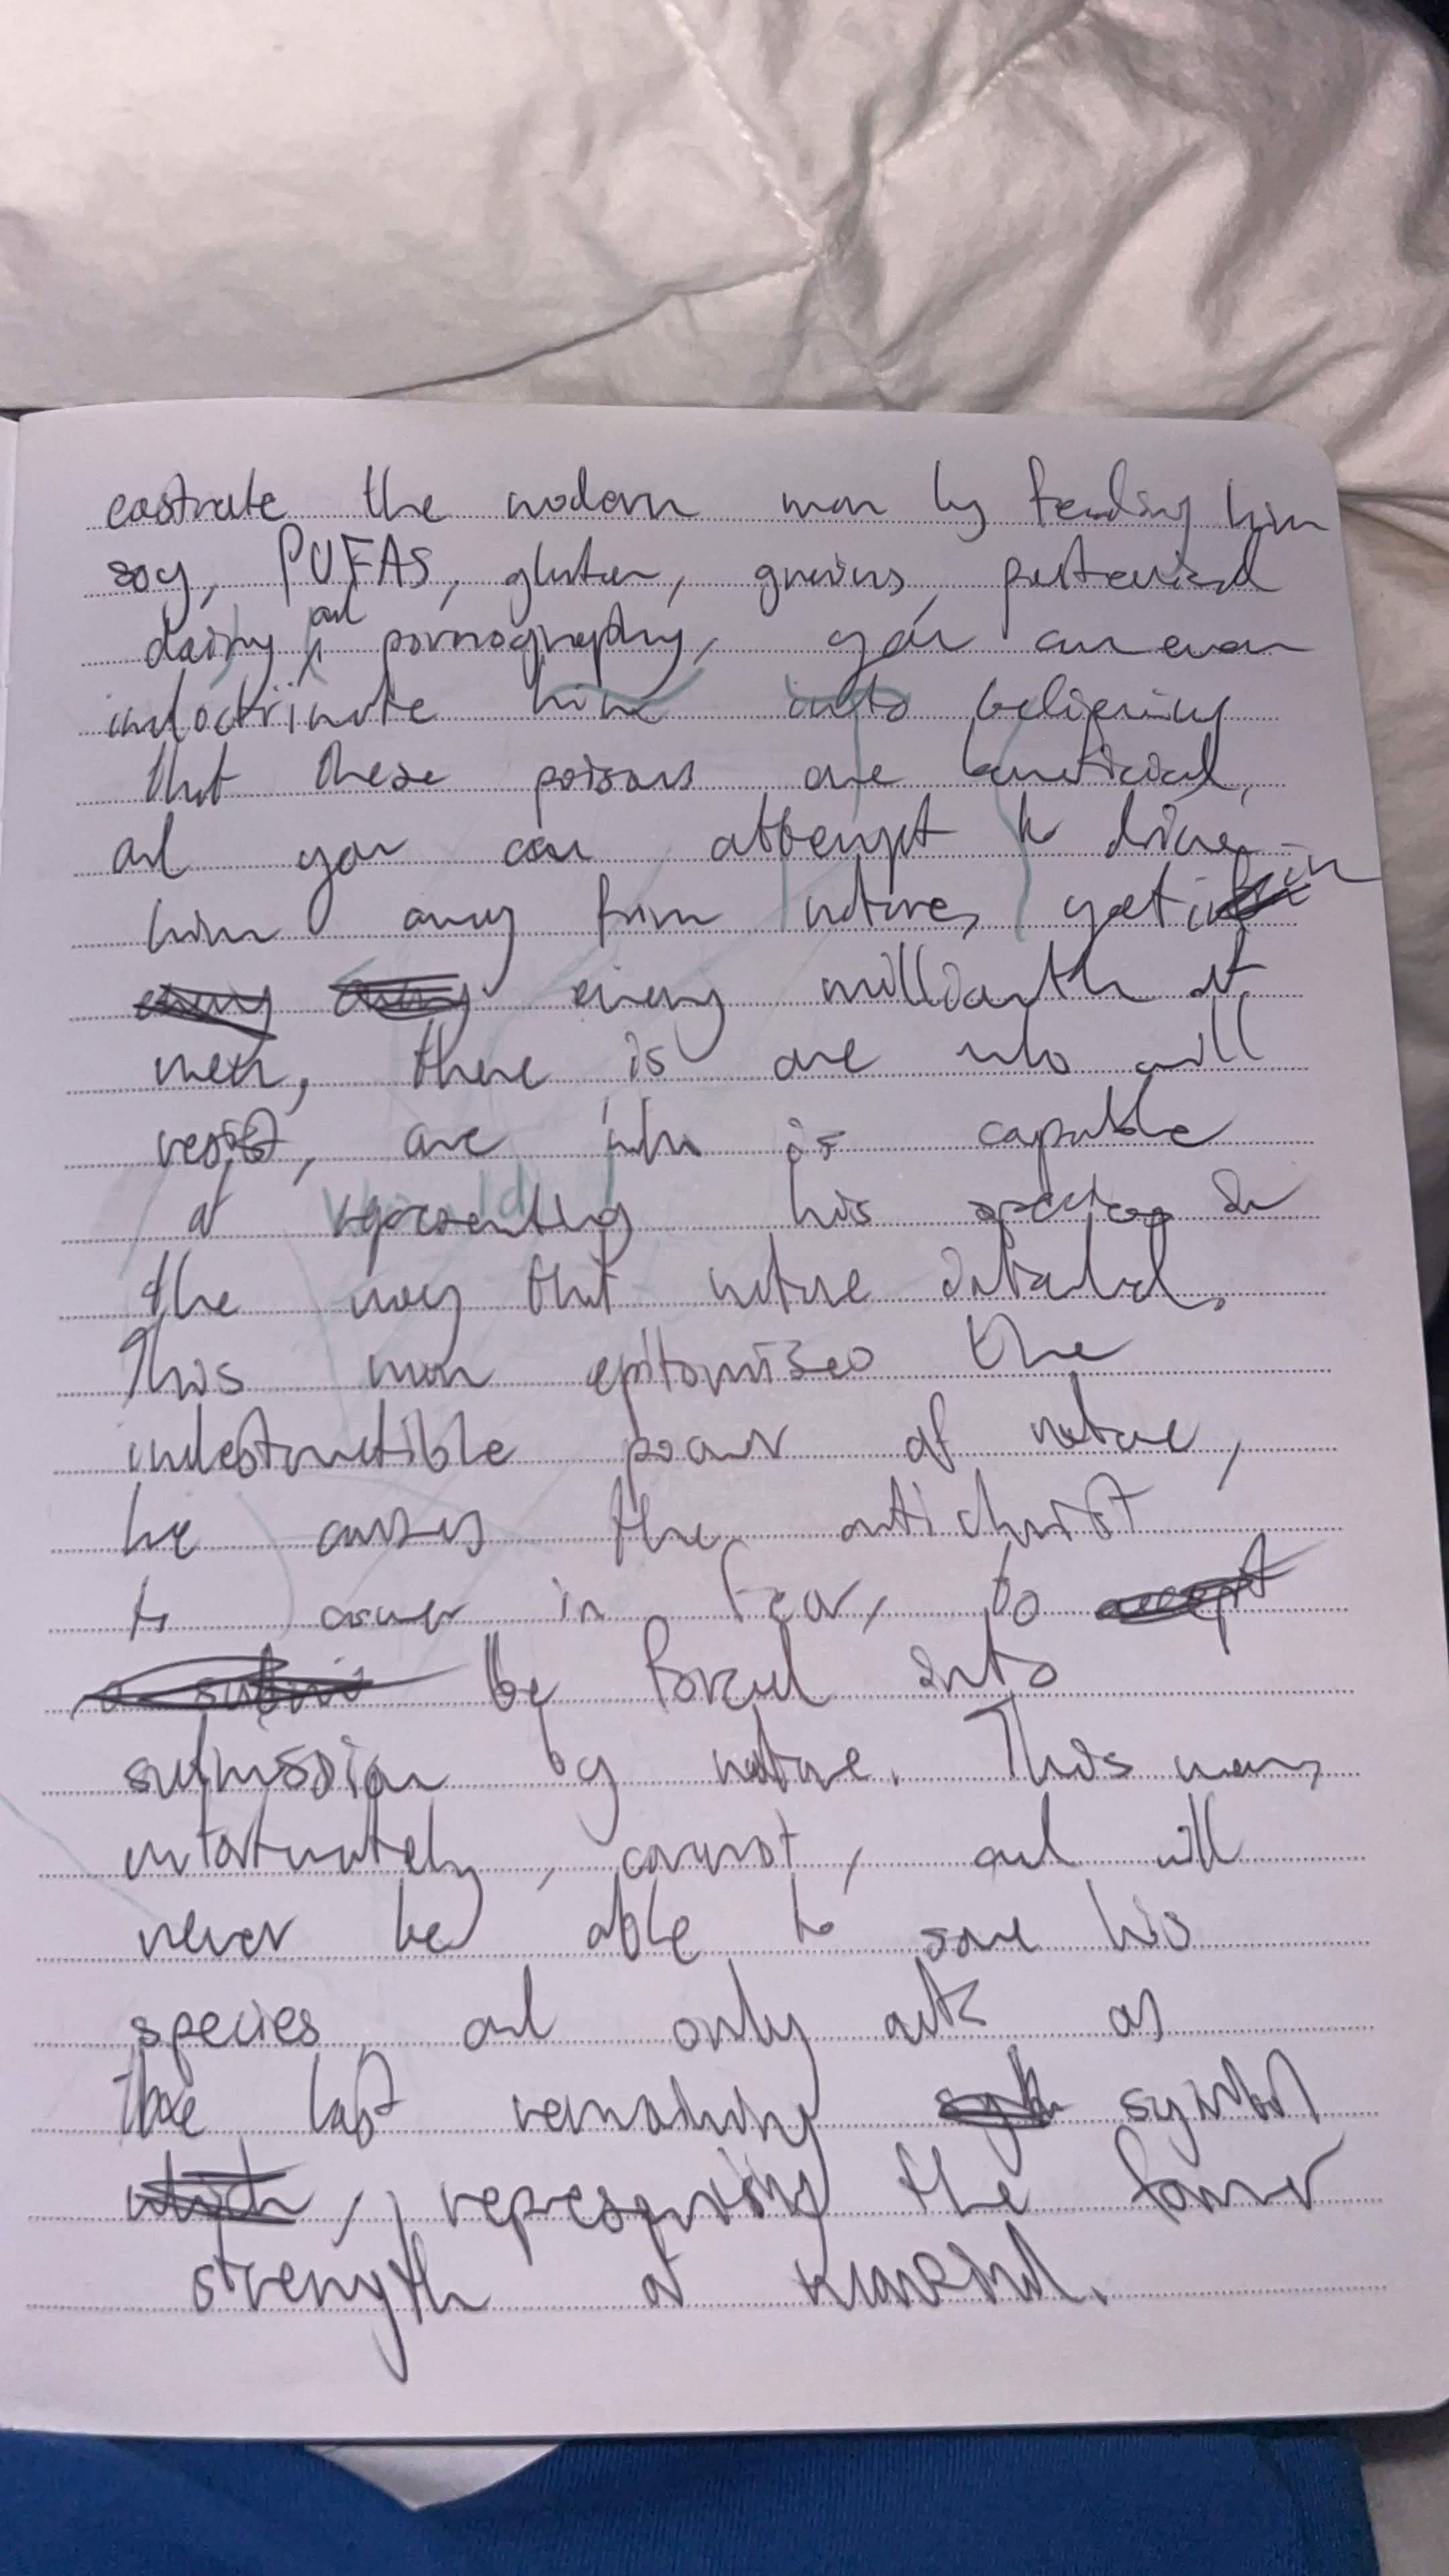 castrate the modern man by feeding him
soy, PUFAS, gluten, grains, pasteurised
dairy and pornography, you can even
indoctrinate him into believing
that these poisons are beneficial,
and you can attempt to drive
him away from nature, yet in
every millionth of
men, there is one who will
resist, one who is capable
of representing his species in
the way that nature intended.
This man epitomises the
indestructible power of nature,
he causes the antichrist
to cower in fear, to accept
be forced into
submission by nature. This man,
unfortunately, cannot, and will
never be able to save his
species and only acts as
the last remaining symbol
, representing the former
strength of mankind.